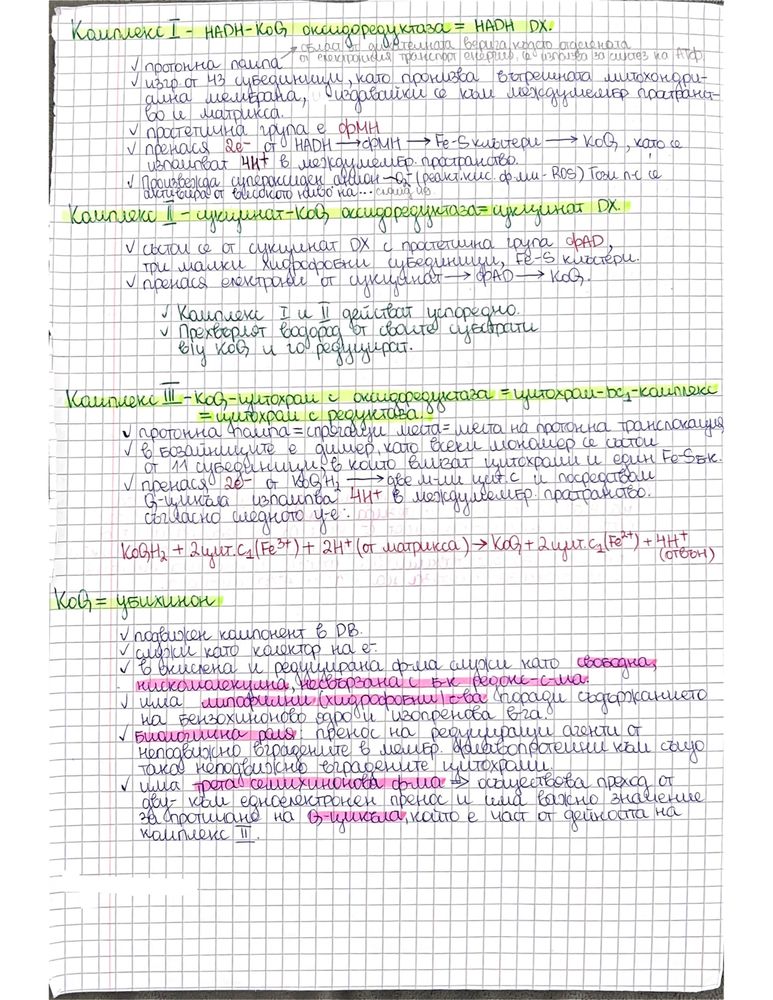 Комплекс I - НАDH-КоQ оксидоредуктаза = НАDH DX.
✓ протонна помпа → област от дихателната верига, където отделената
от електронния транспорт енергия се използва за синтез на АТФ
✓ изгр. от 43 субединици, като пронизва вътрешната митохондри-
ална мембрана, издавайки се към междумембр. пространст-
во и матрикса.
✓ простетична група е ФМН
✓ пренася 2e⁻ от НАDH → ФМН → Fe-S клъстери → КоQ, като се
изпомпват 4H⁺ в междумембр. пространство.
✓ Произвежда супероксиден анион - O₂⁻ (реакт. кис. ф-ми - ROS) Този п-с се
активира от високото ниво на...
Комплекс II - сукцинат-КоQ оксидоредуктаза = сукцинат DX.
✓ състои се от сукцинат DX с простетична група ФАD,
три малки хидрофобни субединици, Fe-S клъстери.
✓ пренася електрони от сукцинат → ФАD → КоQ.
✓ Комплекс I и II действат успоредно.
✓ Прехвърлят водород от своите субстрати
в/у КоQ и го редуцират.
Комплекс III - КоQ-цитохром c оксидоредуктаза = цитохром-bc₁-комплекс
= цитохром c редуктаза.
✓ протонна помпа = спрягащи места = места на протонна транслокация
✓ в бозайниците е димер, като всеки мономер се състои
от 11 субединици, в които влизат цитохроми и един Fe-S б-к.
✓ пренася 2e⁻ от КоQH₂ → две м-ли цит. c и посредством
Q-цикъла изпомпва 4H⁺ в междумембр. пространство.
съгласно следното у-е:
КоQH₂ + 2цит.c₁(Fe³⁺) + 2H⁺ (от матрикса) → КоQ + 2цит.c₁(Fe²⁺) + 4H⁺
(отвън)
КоQ = убихинон
✓ подвижен компонент в DB.
✓ служи като колектор на e⁻.
✓ в окислена и редуцирана ф-ма служи като свободна,
нискомолекулна, несвързана с б-к редокс-с-ма.
✓ има липофилни (хидрофобни) с-ва поради съдържанието
на бензохиноново ядро и изопренова в-га.
✓ Биологична роля: пренос на редуциращи агенти от
неподвижно вградените в мембр. флавопротеини към също
така неподвижно вградените цитохроми.
✓ има трета семихинонова ф-ма ⇒ осъществова преход от
дву- към едноелектронен пренос и има важно значение
за протичане на Q-цикъла, който е част от дейността на
комплекс III.